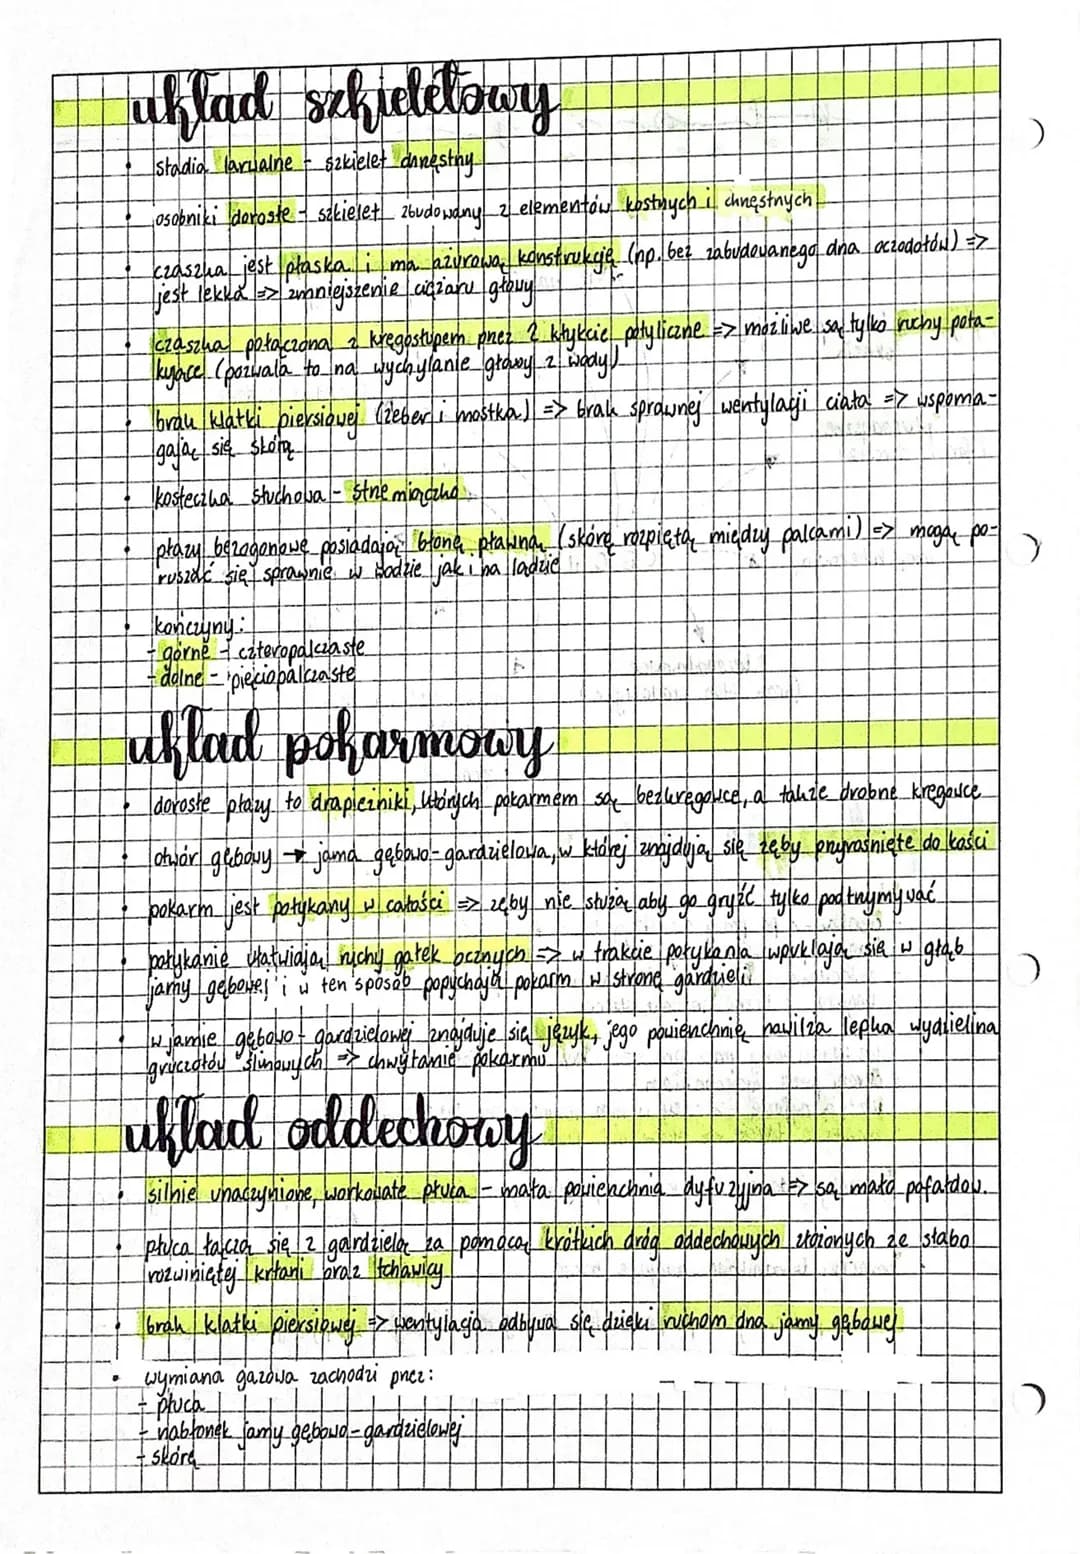 układ szkieletowy
• stadia larwalne - szkielet chrzęstny
• osobniki dorosłe - szkielet zbudowany z elementów kostnych i chrzęstnych
• czaszka jest płaska i ma ażurową konstrukcję (np. bez zabudowanego dna oczodołów) =>
jest lekka => zmniejszenie ciężaru głowy
• czaszka połączona z kręgosłupem przez 2 kłykcie potyliczne => możliwe są tylko ruchy pota-
kujące (pozwala to na wychylanie głowy z wody)
• brak klatki piersiowej (żeber i mostka) => brak sprawnej wentylacji ciała => wspoma-
gają się skórą
• kosteczka słuchowa - strzemiączko
• płazy bezogonowe posiadają błonę pławną (skórę rozpiętą między palcami) => mogą po-
ruszać się sprawnie w wodzie jak i na lądzie
• kończyny:
- górne - czteropalczaste
- dolne - pięciopalczaste
układ pokarmowy
• dorosłe płazy to drapieżniki, których pokarmem są bezkręgowce, a także drobne kręgowce
• otwór gębowy → jama gębowo-gardzielowa, w której znajdują się zęby przyrośnięte do kości
• pokarm jest połykany w całości => zęby nie służą aby go gryźć tylko podtrzymywać
• połykanie ułatwiają ruchy gałek ocznych => w trakcie połykania wpuklają się w głąb
jamy gębowej i w ten sposób popychają pokarm w stronę gardzieli
• w jamie gębowo-gardzielowej znajduje się język, jego powierzchnię nawilża lepka wydzielina
gruczołów ślinowych => chwytanie pokarmu
układ oddechowy
• silnie unaczynione, workowate płuca - mała powierzchnia dyfuzyjna => są mało pofałdow.
• płuca łączą się z gardzielą za pomocą krótkich dróg oddechowych złożonych ze słabo
rozwiniętej krtani oraz tchawicy
• brak klatki piersiowej => wentylacja odbywa się dzięki ruchom dna jamy gębowej
• wymiana gazowa zachodzi przez:
- płuca
- nabłonek jamy gębowo-gardzielowej
- skórę